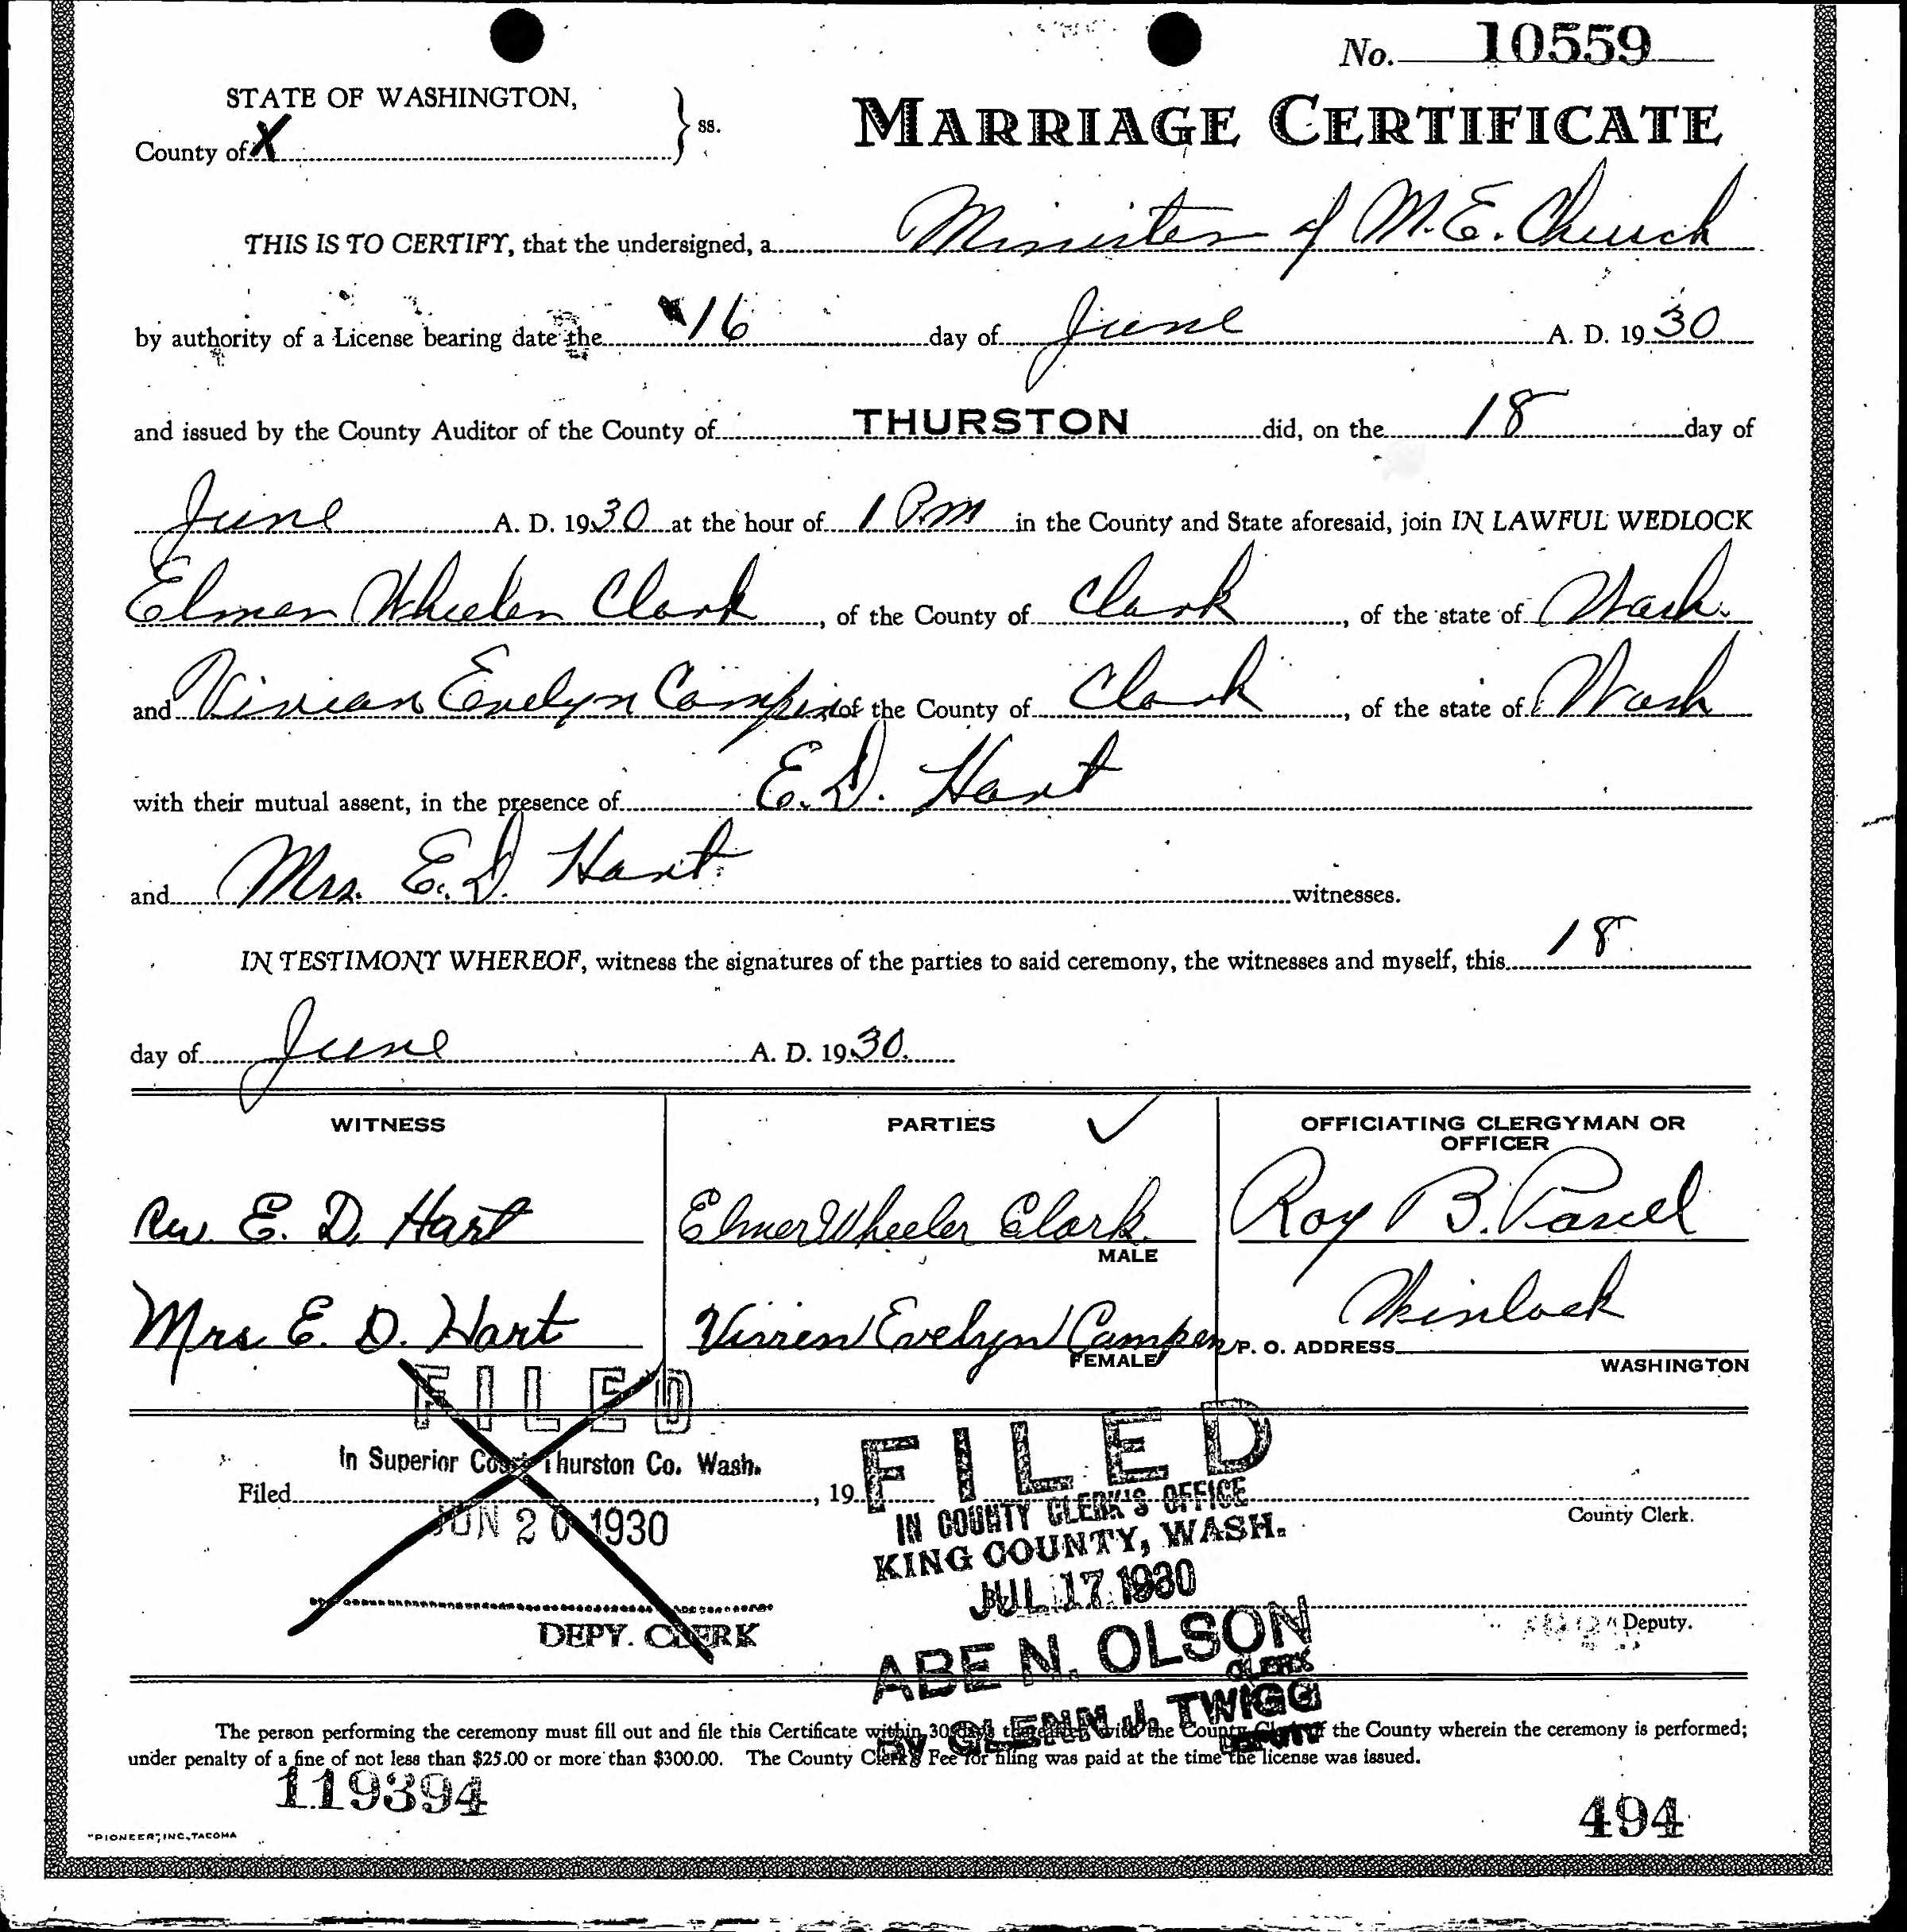 No. 10559
STATE OF WASHINGTON,
County of X } ss.
MARRIAGE CERTIFICATE
THIS IS TO CERTIFY, that the undersigned, a Minister of M.E. Church
by authority of a License bearing date the 16 day of June A. D. 1930
and issued by the County Auditor of the County of THURSTON did, on the 18 day of
June A. D. 1930 at the hour of 1 P.M in the County and State aforesaid, join IN LAWFUL WEDLOCK
Elmer Wheeler Clark, of the County of Clark, of the state of Wash.
and Vivian Evelyn of the County of Clark, of the state of Wash
with their mutual assent, in the presence of E. D. Hart
and Mrs. E. D. Hart witnesses.
IN TESTIMONY WHEREOF, witness the signatures of the parties to said ceremony, the witnesses and myself, this 18
day of June A. D. 1930.
WITNESS PARTIES OFFICIATING CLERGYMAN OR OFFICER
Rev. E. D. Hart Elmer Wheeler Clark Roy B.
MALE
Mrs E. D. Hart Evelyn Campen P. O. ADDRESS Winlock
FEMALE WASHINGTON
FILED
In Superior Court Thurston Co. Wash.
JUN 20 1930
DEPY. CLERK
Filed , 19
FILED
IN COUNTY CLERK'S OFFICE
KING COUNTY, WASH.
JUL 17 1930
ABE N. OLSON
CLERK
BY GLENN J. TWIGG
DEPUTY
County Clerk.
Deputy.
The person performing the ceremony must fill out and file this Certificate within 30 days thereafter with the County Clerk of the County wherein the ceremony is performed;
under penalty of a fine of not less than $25.00 or more than $300.00. The County Clerk's Fee for filing was paid at the time the license was issued.
119394
494
"PIONEER", INC., TACOMA